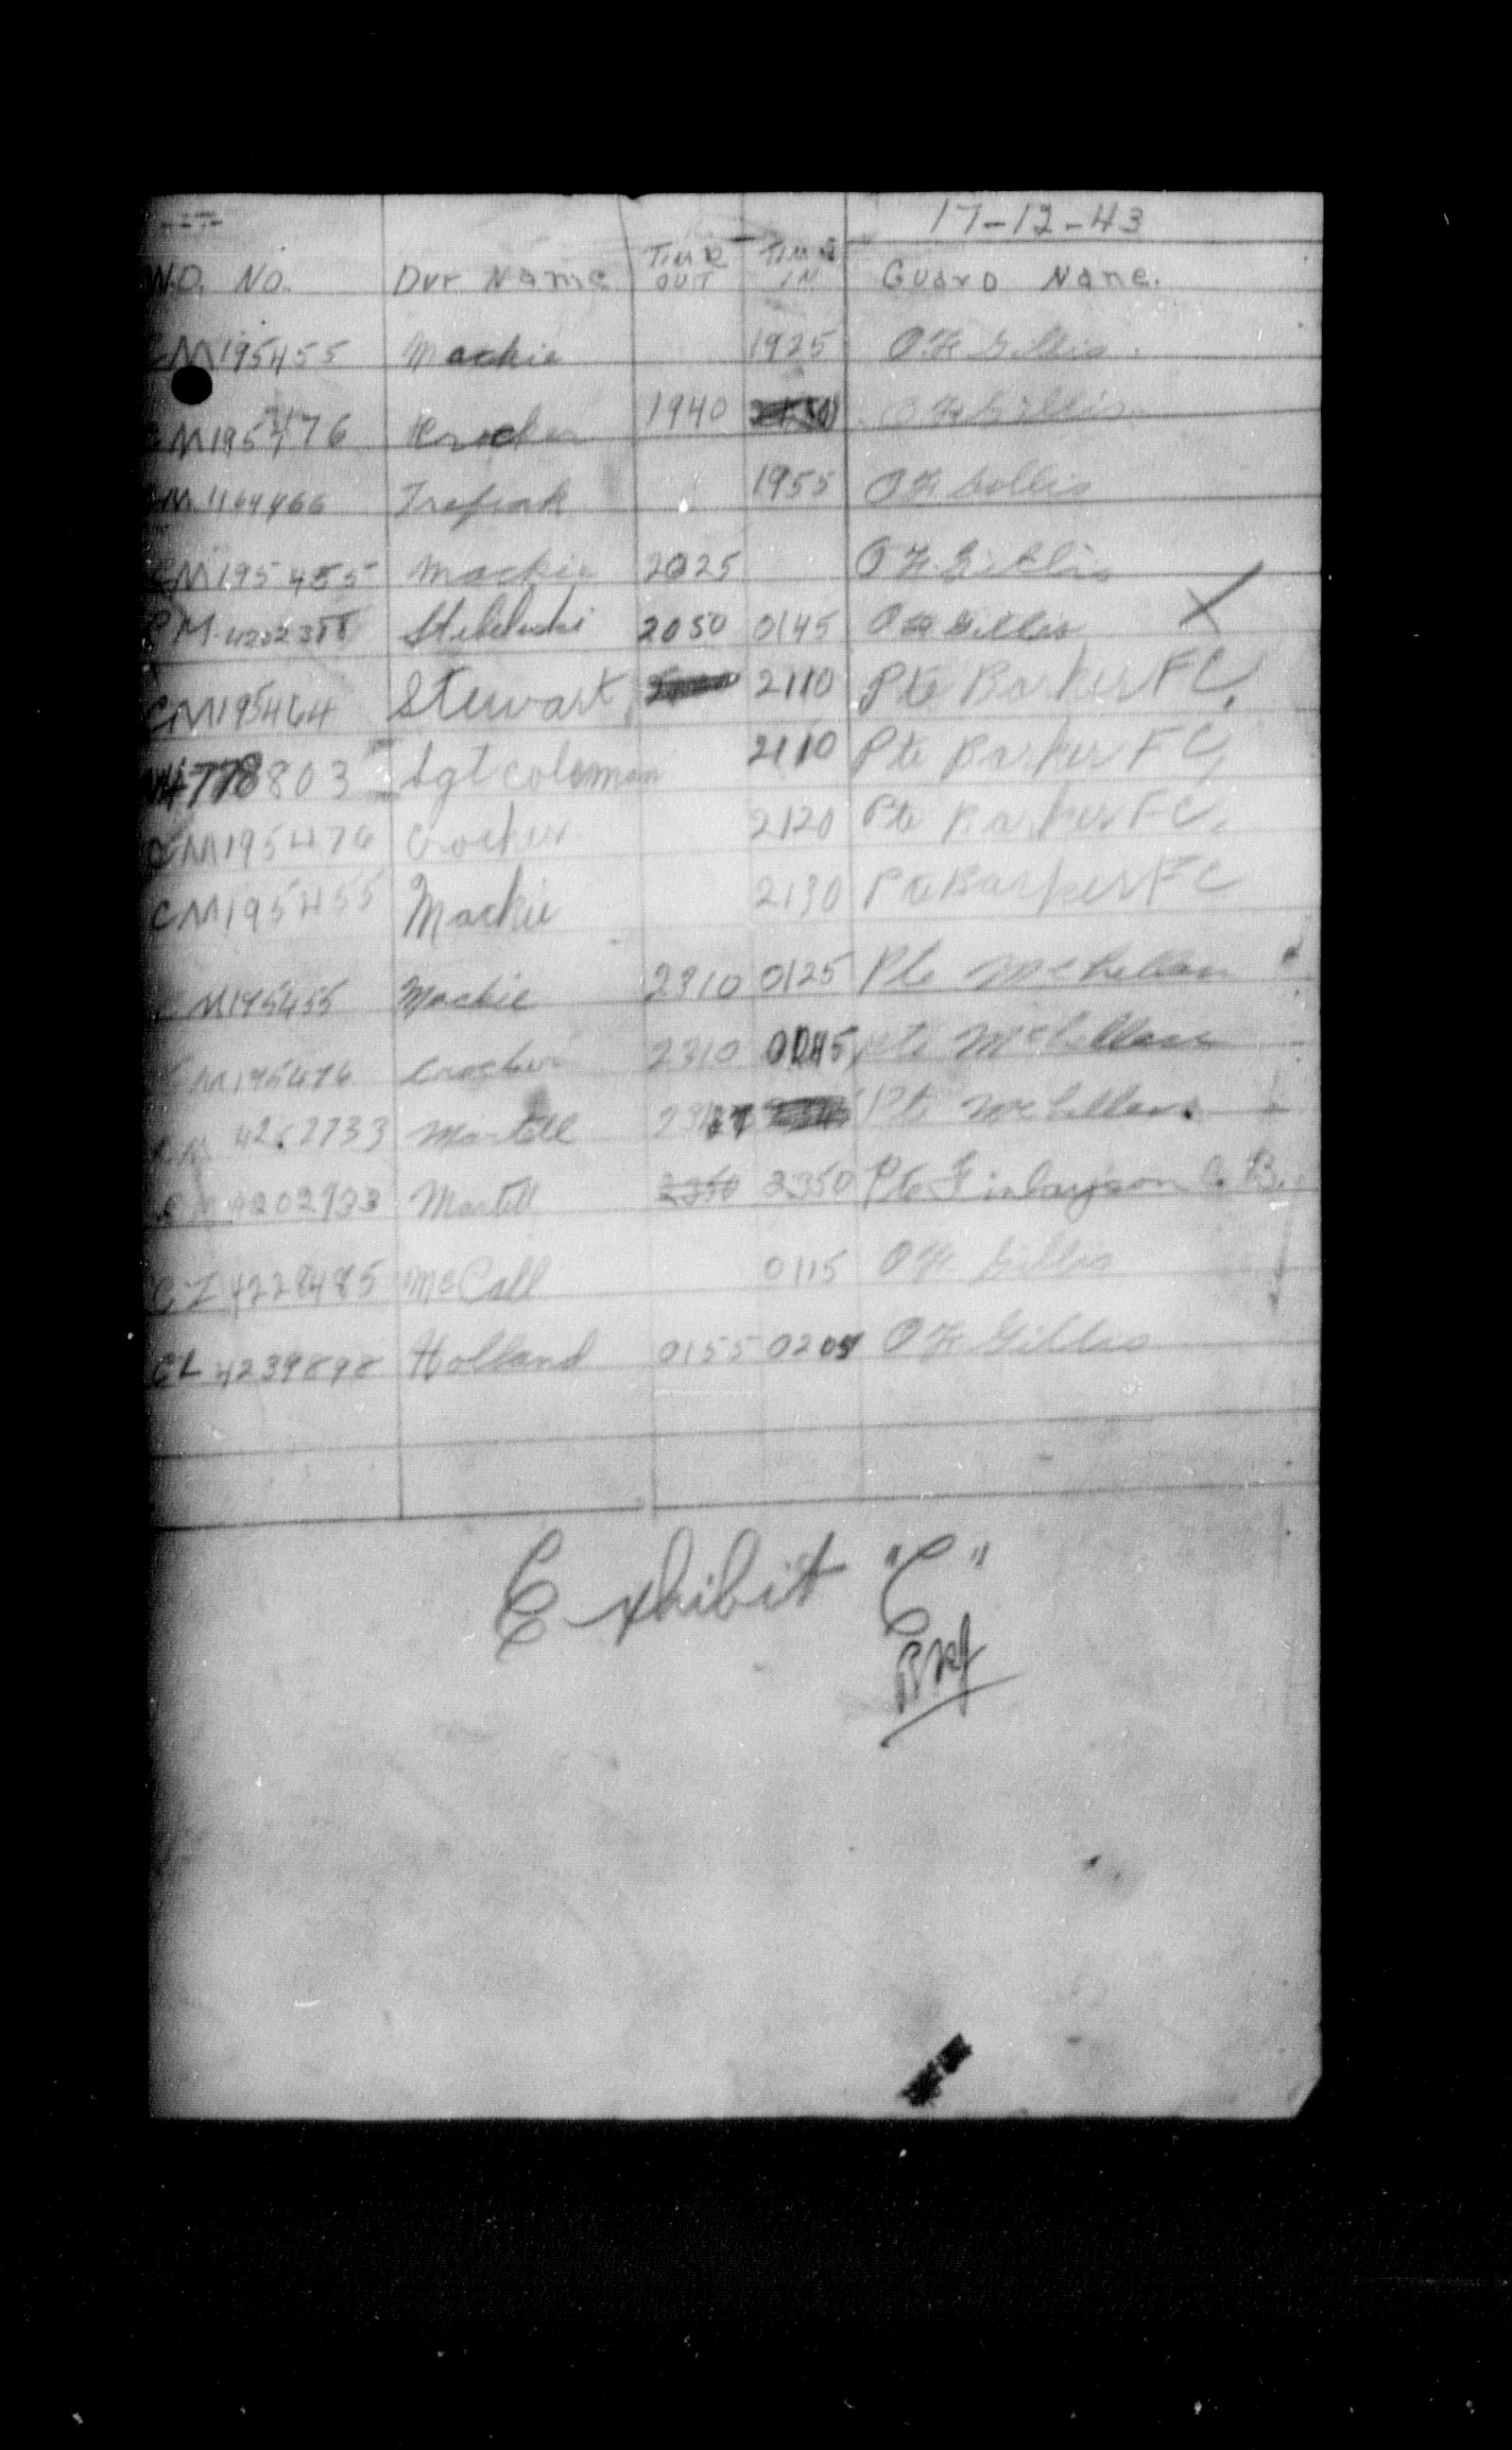 17-12-43
W.D. No. Dvr Name TIME OUT TIME IN Guard Name.
CM195455 Mackie 1925 O.F. Gillis.
CM195476 Krocker 1940 O F Gillis.
1955 O F Gillis
CM195455 Mackie 2025 O F Gillis
CM 2050 0145 O F Gillis X
CM195464 Stewart 2110 Pte Barker FC.
778803 Sgt Coleman 2110 Pte Barker FC,
CM195476 Crocker 2120 Pte Barker FC.
CM195455 Mackie 2130 Pte Barker FC
CM195455 Mackie 2310 0125 Pte McLellan
CM195476 Crocker 2310 0045 Pte McLellan
Martell Pte McLellan
4202933 Martell 2350 2350 Pte Finlayson C. B.
4228485 McCall 0115 O F Gillis
CL 4239898 Holland 0155 0205 O F Gillis
Exhibit "C"